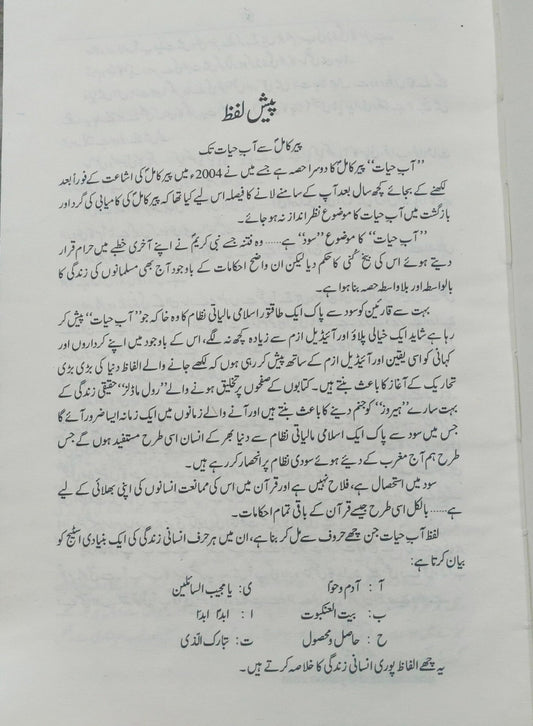 پیش لفظ
پیر کاملؐ سے آبِ حیات تک
’’آبِ حیات‘‘ پیر کاملؐ کا دوسرا حصہ ہے جسے میں نے 2004ء میں پیر کاملؐ کی اشاعت کے فوراً بعد
لکھنے کے بجائے کچھ سال بعد آپ کے سامنے لانے کا فیصلہ اس لیے کیا تھا کہ پیر کاملؐ کی کامیابی کی گرد اور
بازگشت میں آبِ حیات کا موضوع نظر انداز نہ ہو جائے۔
’’آبِ حیات‘‘ کا موضوع ’’سود‘‘ ہے...... وہ فتنہ جسے نبی کریمؐ نے اپنے آخری خطبے میں حرام قرار
دیتے ہوئے اس کی بیخ کنی کا حکم دیا لیکن ان واضح احکامات کے باوجود آج بھی مسلمانوں کی زندگی کا
بالواسطہ اور بلاواسطہ حصہ بنا ہوا ہے۔
بہت سے قارئین کو سود سے پاک ایک طاقتور اسلامی مالیاتی نظام کا وہ خاکہ جو ’’آبِ حیات‘‘ پیش کر
رہا ہے شاید ایک خیالی پلاؤ اور آئیڈیل ازم سے زیادہ کچھ نہ لگے، اس کے باوجود میں اپنے کرداروں اور
کہانی کو اسی یقین اور آئیڈیل ازم کے ساتھ پیش کر رہی ہوں کہ لکھے جانے والے الفاظ دنیا کی بڑی بڑی
تحاریک کے آغاز کا باعث بنتے ہیں۔ کتابوں کے صفحوں پر تخلیق ہونے والے ’’رول ماڈلز‘‘ حقیقی زندگی کے
بہت سارے ’’ہیروز‘‘ کو جنم دینے کا باعث بنتے ہیں اور آنے والے زمانوں میں ایک زمانہ ایسا ضرور آئے گا
جس میں سود سے پاک ایک اسلامی مالیاتی نظام سے دنیا بھر کے انسان اسی طرح مستفید ہوں گے جس
طرح ہم آج مغرب کے دیئے ہوئے سودی نظام پر انحصار کر رہے ہیں۔
سود میں استحصال ہے، فلاح نہیں ہے اور قرآن میں اس کی ممانعت انسانوں کی اپنی بھلائی کے لیے
ہے...... بالکل اسی طرح جیسے قرآن کے باقی تمام احکامات۔
لفظ آبِ حیات جن چھے حروف سے مل کر بنا ہے، ان میں ہر حرف انسانی زندگی کی ایک بنیادی اسٹیج کو
بیان کرتا ہے:
آ : آدم و حوّا ی: یا مجیب السائلین
ب: بیت العنکبوت ا : ابدًا ابدًا
ح : حاصل و محصول ت: تبارک الذی
یہ چھے الفاظ پوری انسانی زندگی کا خلاصہ کرتے ہیں۔